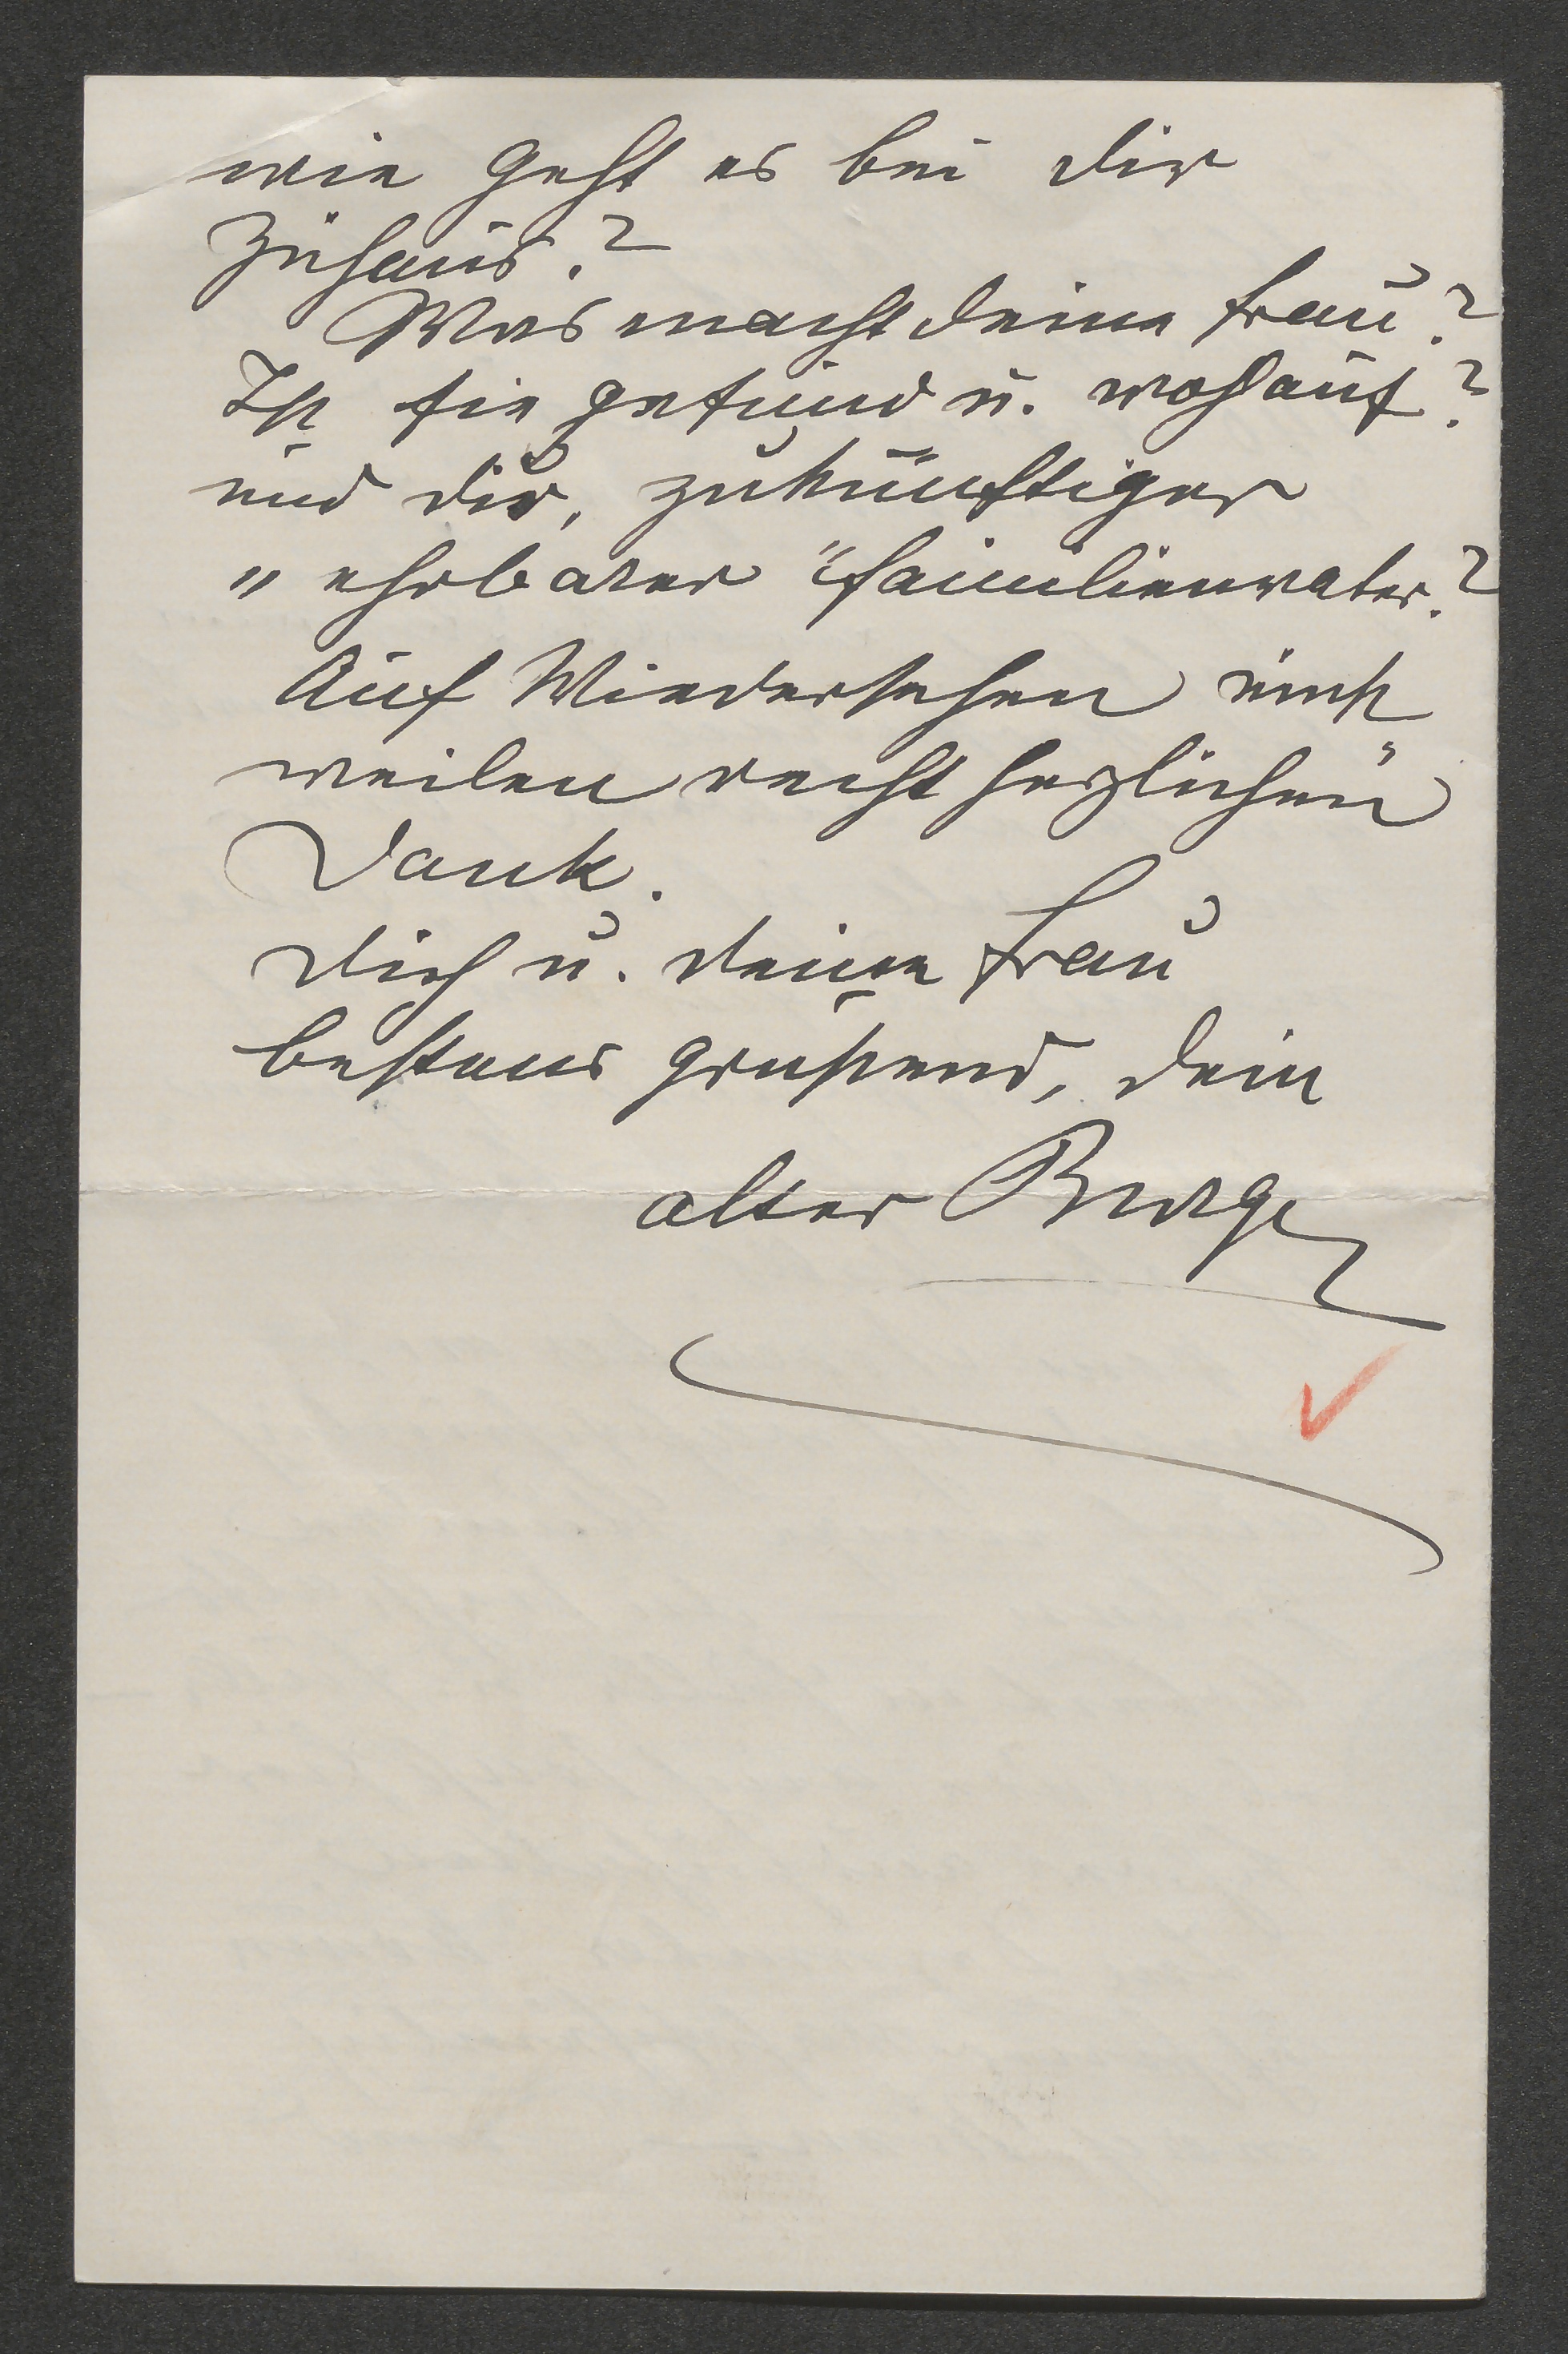 wie geht es bei dir
zuhaus?
Was macht deine Frau?
Ist sie gesund u. wohlauf?
und du, zukünftiger
"ehrbarer" Familienvater?
Auf Wiedersehen einst
weilen recht herzlichen
Dank.
dich u. deine Frau
bestens grüßend, dein
alter